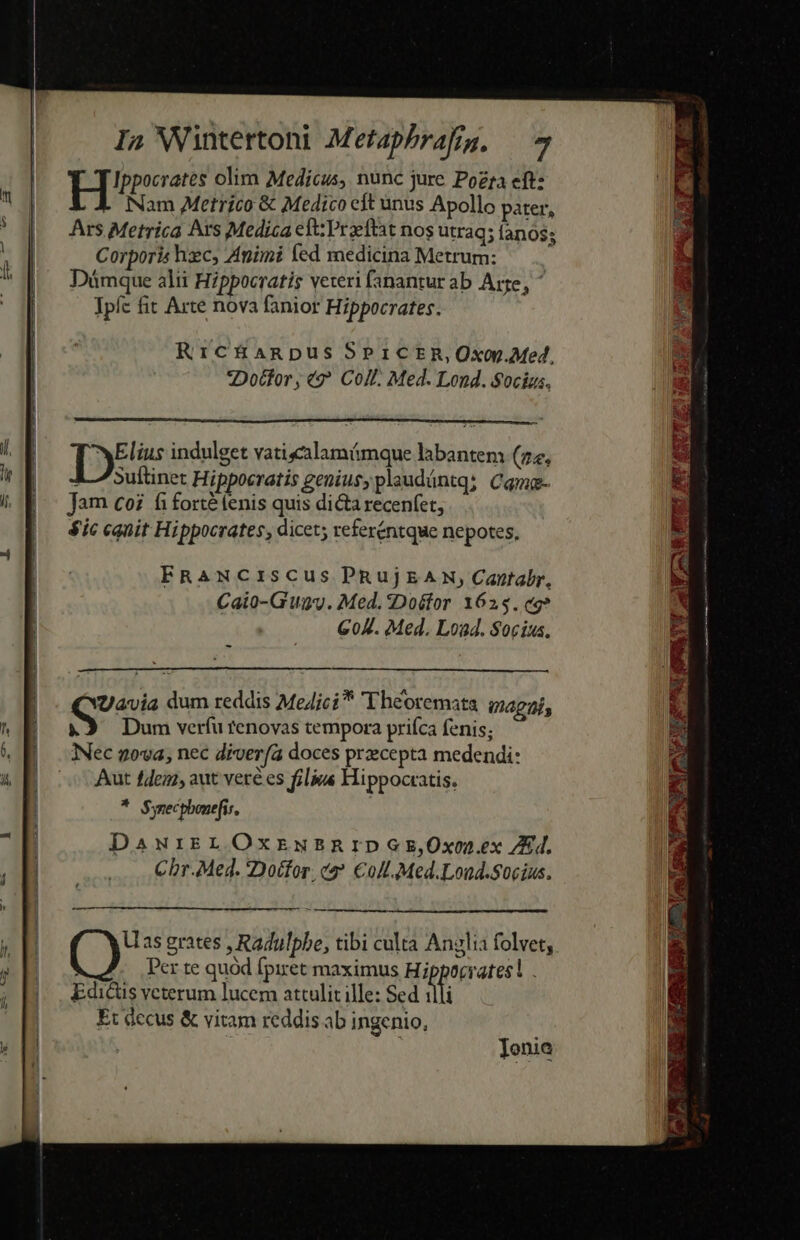 In Wintertoni Metaphraſin. 7
HIppocrates olim Medicus, nunc jure Poëta eſt:
Nam Metrico & Medico eſt unus Apollo pater,
Ars Metrica Ars Medica eſt: Præſtat nos utraq; ſanos;
Corporis hæc, Animi ſed medicina Metrum:
Dúmque alii Hippocratis veteri ſanantur ab Arte,
Ipſe fit Arte nova ſanior Hippocrates.
RICHARDUS SPICER, Oxon. Med.
Doctor, & Coll. Med. Lond. Socius.
DElius indulget vati, calamúmque labantem
Suſtinet Hippocratis genius, plaudúntq; Camœ-(næ,
Jam Coi ſi fortè ſenis quis dicta recenſet,
Sic canit Hippocrates, dicet; referéntque nepotes.
FRANCISCUS PRUJEAN, Cantabr.
Caio-Gunv. Med. Doctor 1625. &
Coll. Med. Lond. Socius.
SUavia dum reddis Medici * Theoremata magni,
Dum verſu renovas tempora priſca ſenis;
Nec nova, nec diverſa doces præcepta medendi:
Aut idem, aut verè es filius Hippocratis.
* Synecphonesis.
DANIEL OXENBRIDGE, Oxon. ex Æd.
Chr. Med. Doctor, & Coll. Med. Lond. Socius.
QUas grates, Radulphe, tibi culta Anglia ſolvet,
Per te quòd ſpiret maximus Hippocrates!
Edictis veterum lucem attulit ille: Sed illi
Et decus & vitam reddis ab ingenio,
Ioniæ